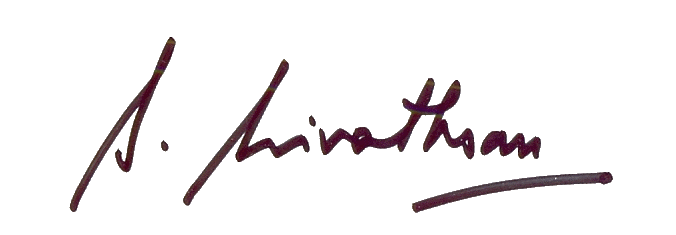 S. Srivathsan